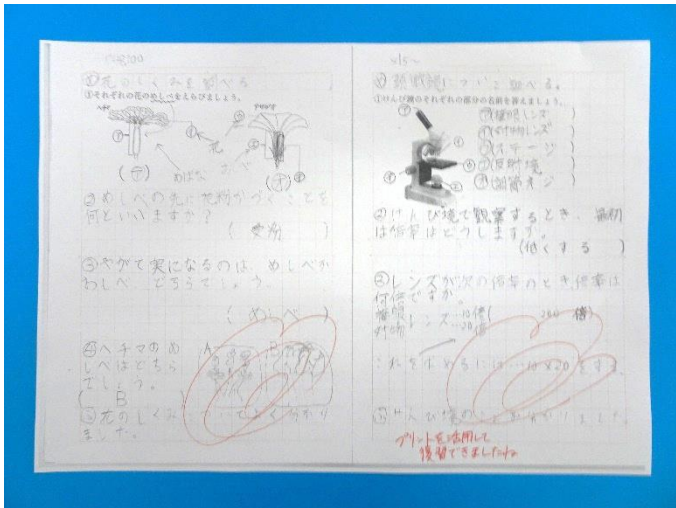 花のしくみを調べる
①それぞれの花のめしべをえらびましょう。
めばな
②めしべの先に花粉がつくことを
何といいますか？
(受粉)
③やがて実になるのは、めしべか
おしべ どちらでしょう。
(めしべ)
④ヘチマのめ
しべはどちら
でしょう。
(B)
A
B
花のしくみ
ました。
8/5~
顕微鏡について調べる。
①けんび鏡のそれぞれの部分の名前を答えましょう。
接眼レンズ)
対物レンズ
ステージ)
反射境)
調節ネジ)
②けんび境で観察するとき、最初
は倍率はどうしますか。
(低くする)
③レンズが次の倍率のとき、倍率は
何倍ですか。
接眼レンズ…10倍
対物レンズ…20倍
(200倍)
これをもとめるには…10×20をする
けんび境のことが分かりました。
プリントを活用して
復習できましたね